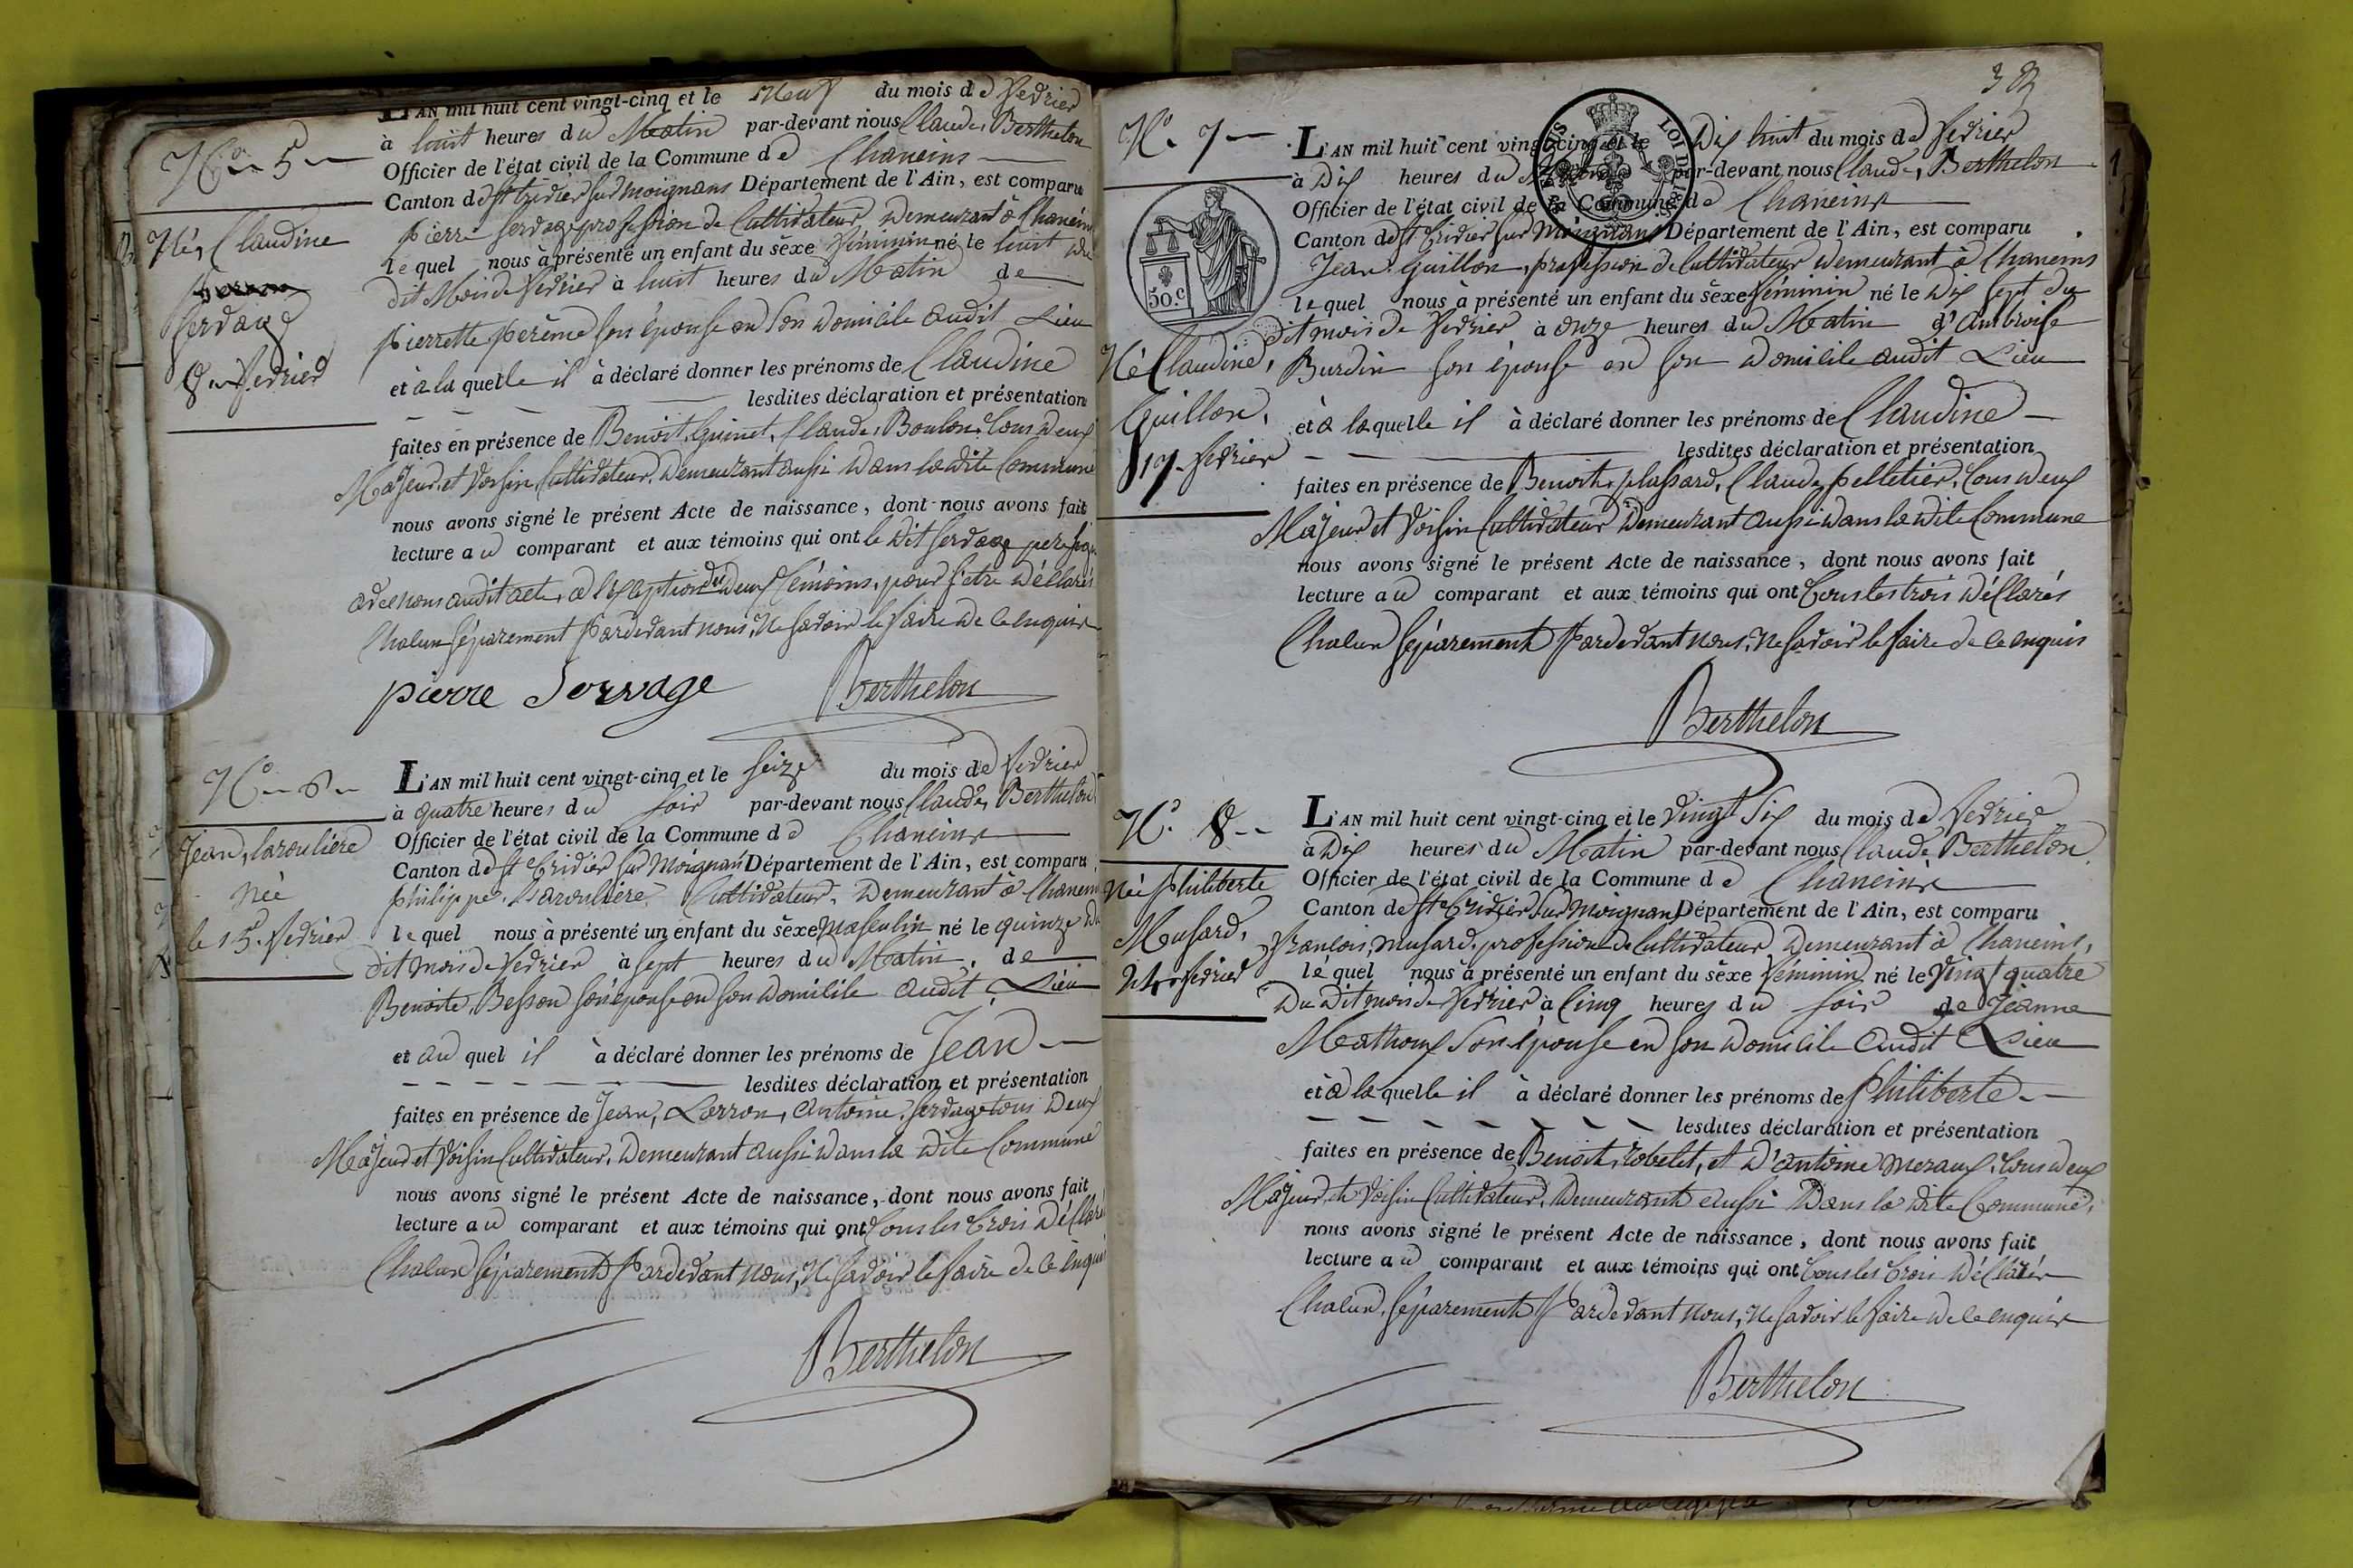 N.° 5
Née Claudine
Servage
8 fevrier
L'AN mil huit cent vingt-cinq et le Neuf du mois de fevrier
à huit heures du Matin par-devant nous Claude, Berthelon
Officier de l'état civil de la Commune de Chaneins
Canton de St tridier sur moignans Département de l'Ain, est comparu
Pierre servage profession de Cultivateur demeurant à Chaneins
lequel nous à présenté un enfant du sèxe féminin né le huit du
dit Mois de fevrier à huit heures du Matin de
Pierrette son épouse en son domicile audit Lieu
et à la quelle il à déclaré donner les prénoms de Claudine
lesdites déclaration et présentation
faites en présence de Benoit, Guinet, Claude, Boulon, tous deux
Majeur et Voisin, Cultivateur, demeurant aussi dans la dite Commune
nous avons signé le présent Acte de naissance, dont nous avons fait
lecture au comparant et aux témoins qui ont le dit servage pere signé
avec nous audit acte, a l'exception du deux témoins, pour s'etre déclarés
Chacun séparement Pardevant nous, Ne savoir le faire de ce enquis
pierre Servage Berthelon
N.° 6
Jean, laroulière
née
le 15. fevrier
L'AN mil huit cent vingt-cinq et le seize du mois de fevrier
à quatre heures du soir par-devant nous Claude, Berthelon
Officier de l'état civil de la Commune de Chaneins
Canton de St tridier sur Moignan Département de l'Ain, est comparu
philippe, Laroulière, Cultivateur, demeurant à Chaneins
lequel nous à présenté un enfant du sèxe Masculin né le quinze du
dit mois de fevrier à sept heures du Matin, de
Benoite, Besson son épouse en son domicile audit Lieu
et au quel il à déclaré donner les prénoms de Jean
lesdites déclaration et présentation
faites en présence de Jean, Lorron, antoine, servage tous deux
Majeur et Voisin Cultivateur, demeurant aussi dans la dite Commune
nous avons signé le présent Acte de naissance, dont nous avons fait
lecture au comparant et aux témoins qui ont tous les trois déclarés
Chacun séparement Pardevant nous, Ne savoir le faire de ce enquis
Berthelon
38
N.° 7
50.c
Né Claudine,
Guillon,
17 fevrier
L'AN mil huit cent vingt-cinq et le Dix huit du mois de fevrier
à Dix heures du Matin par-devant nous Claude, Berthelon
Officier de l'état civil de la Commune de Chaneins
Canton de St tridier sur Moignans Département de l'Ain, est comparu
Jean Guillon, profession de Cultivateur demeurant à Chaneins
lequel nous à présenté un enfant du sèxe féminin né le Dix sept du
dit mois de fevrier à onze heures du Matin d'ambroise
Burdin son épouse en son domicile audit Lieu
et à la quelle il à déclaré donner les prénoms de Claudine
lesdites déclaration et présentation
faites en présence de Benoit, plassard, Claude pelletier, tous deux
Majeur et Voisin Cultivateur demeurant aussi dans la dite Commune
nous avons signé le présent Acte de naissance, dont nous avons fait
lecture au comparant et aux témoins qui ont tous les trois déclarés
Chacun séparement Pardevant nous, Ne savoir le faire de ce enquis
Berthelon
N.° 8
Née Philiberte
Musard,
24 fevrier
L'AN mil huit cent vingt-cinq et le vingt six du mois de fevrier
à Dix heures du Matin par-devant nous Claude Berthelon
Officier de l'état civil de la Commune de Chaneins
Canton de St tridier sur Moignans Département de l'Ain, est comparu
francois, Musard, profession de Cultivateur demeurant à Chaneins,
lequel nous à présenté un enfant du sèxe féminin né le vingt quatre
Du dit mois de fevrier à Cinq heures du soir de Jeanne
Mathoux son épouse en son domicile audit Lieu
et à la quelle il à déclaré donner les prénoms de Philiberte
lesdites déclaration et présentation
faites en présence de Benoit, robelet, et d'antoine Meraux, tous deux
Majeur et Voisin Cultivateur, demeurant aussi dans la dite Commune,
nous avons signé le présent Acte de naissance, dont nous avons fait
lecture au comparant et aux témoins qui ont tous les trois déclarés
Chacun, séparement Pardevant nous, Ne savoir le faire de ce enquis
Berthelon